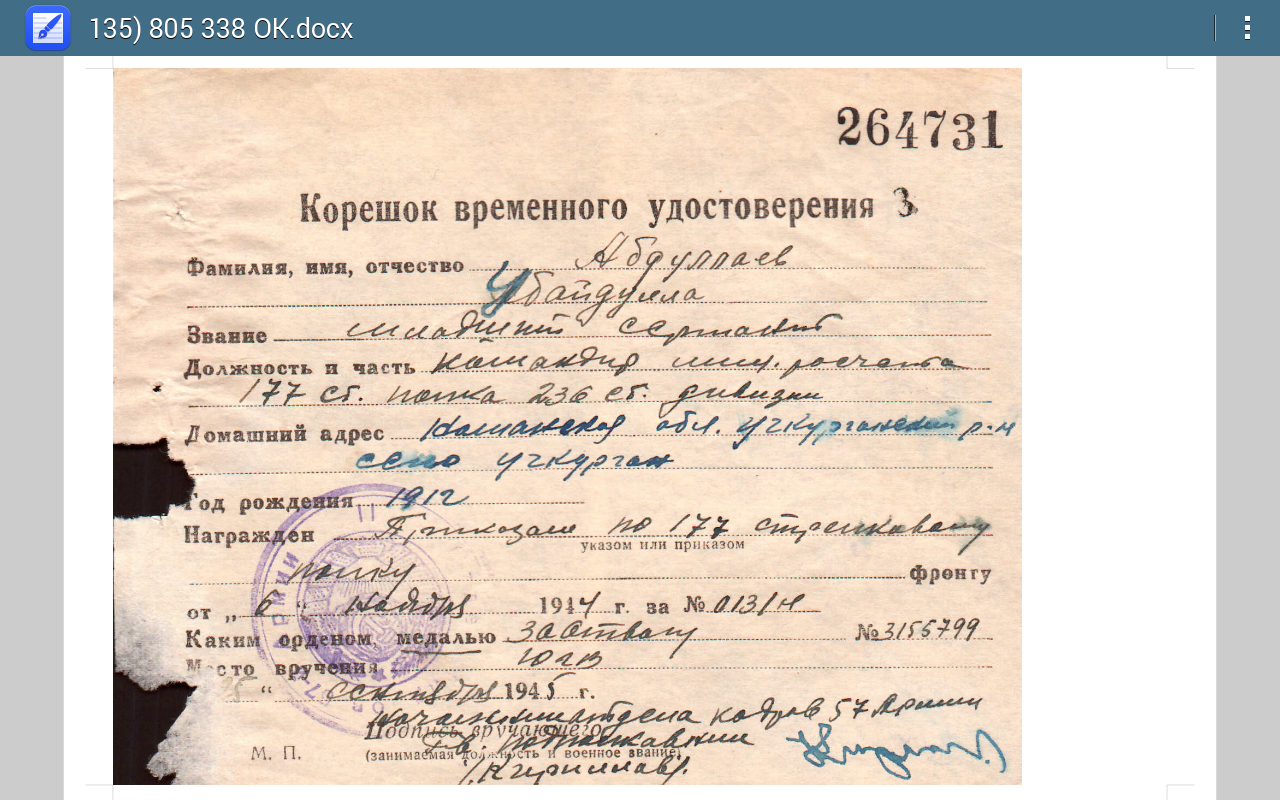 135) 805 338 OK.docx
264731
Корешок временного удостоверения З
Фамилия, имя, отчество Абдуллаев
Убайдулла
Звание младший сержант
Должность и часть командир мин. расчета
177 ст. полка 236 ст. дивизии
Домашний адрес обл. Учкурганский р-н
село Учкурган
Год рождения 1912
Награжден Приказом по 177 стрелковому
указом или приказом
полку фронту
от „ 6 “ ноября 1944 г. за № 013/н
Каким орденом, медалью За Отвагу № 3155799
Место вручения ЮГВ
“ сентября 1945 г.
Начальник отдела кадров 57 Армии
Подпись вручающего
Гв. подполковник
М. П. (занимаемая должность и военное звание)
/Кириллов/.
АРМИИ